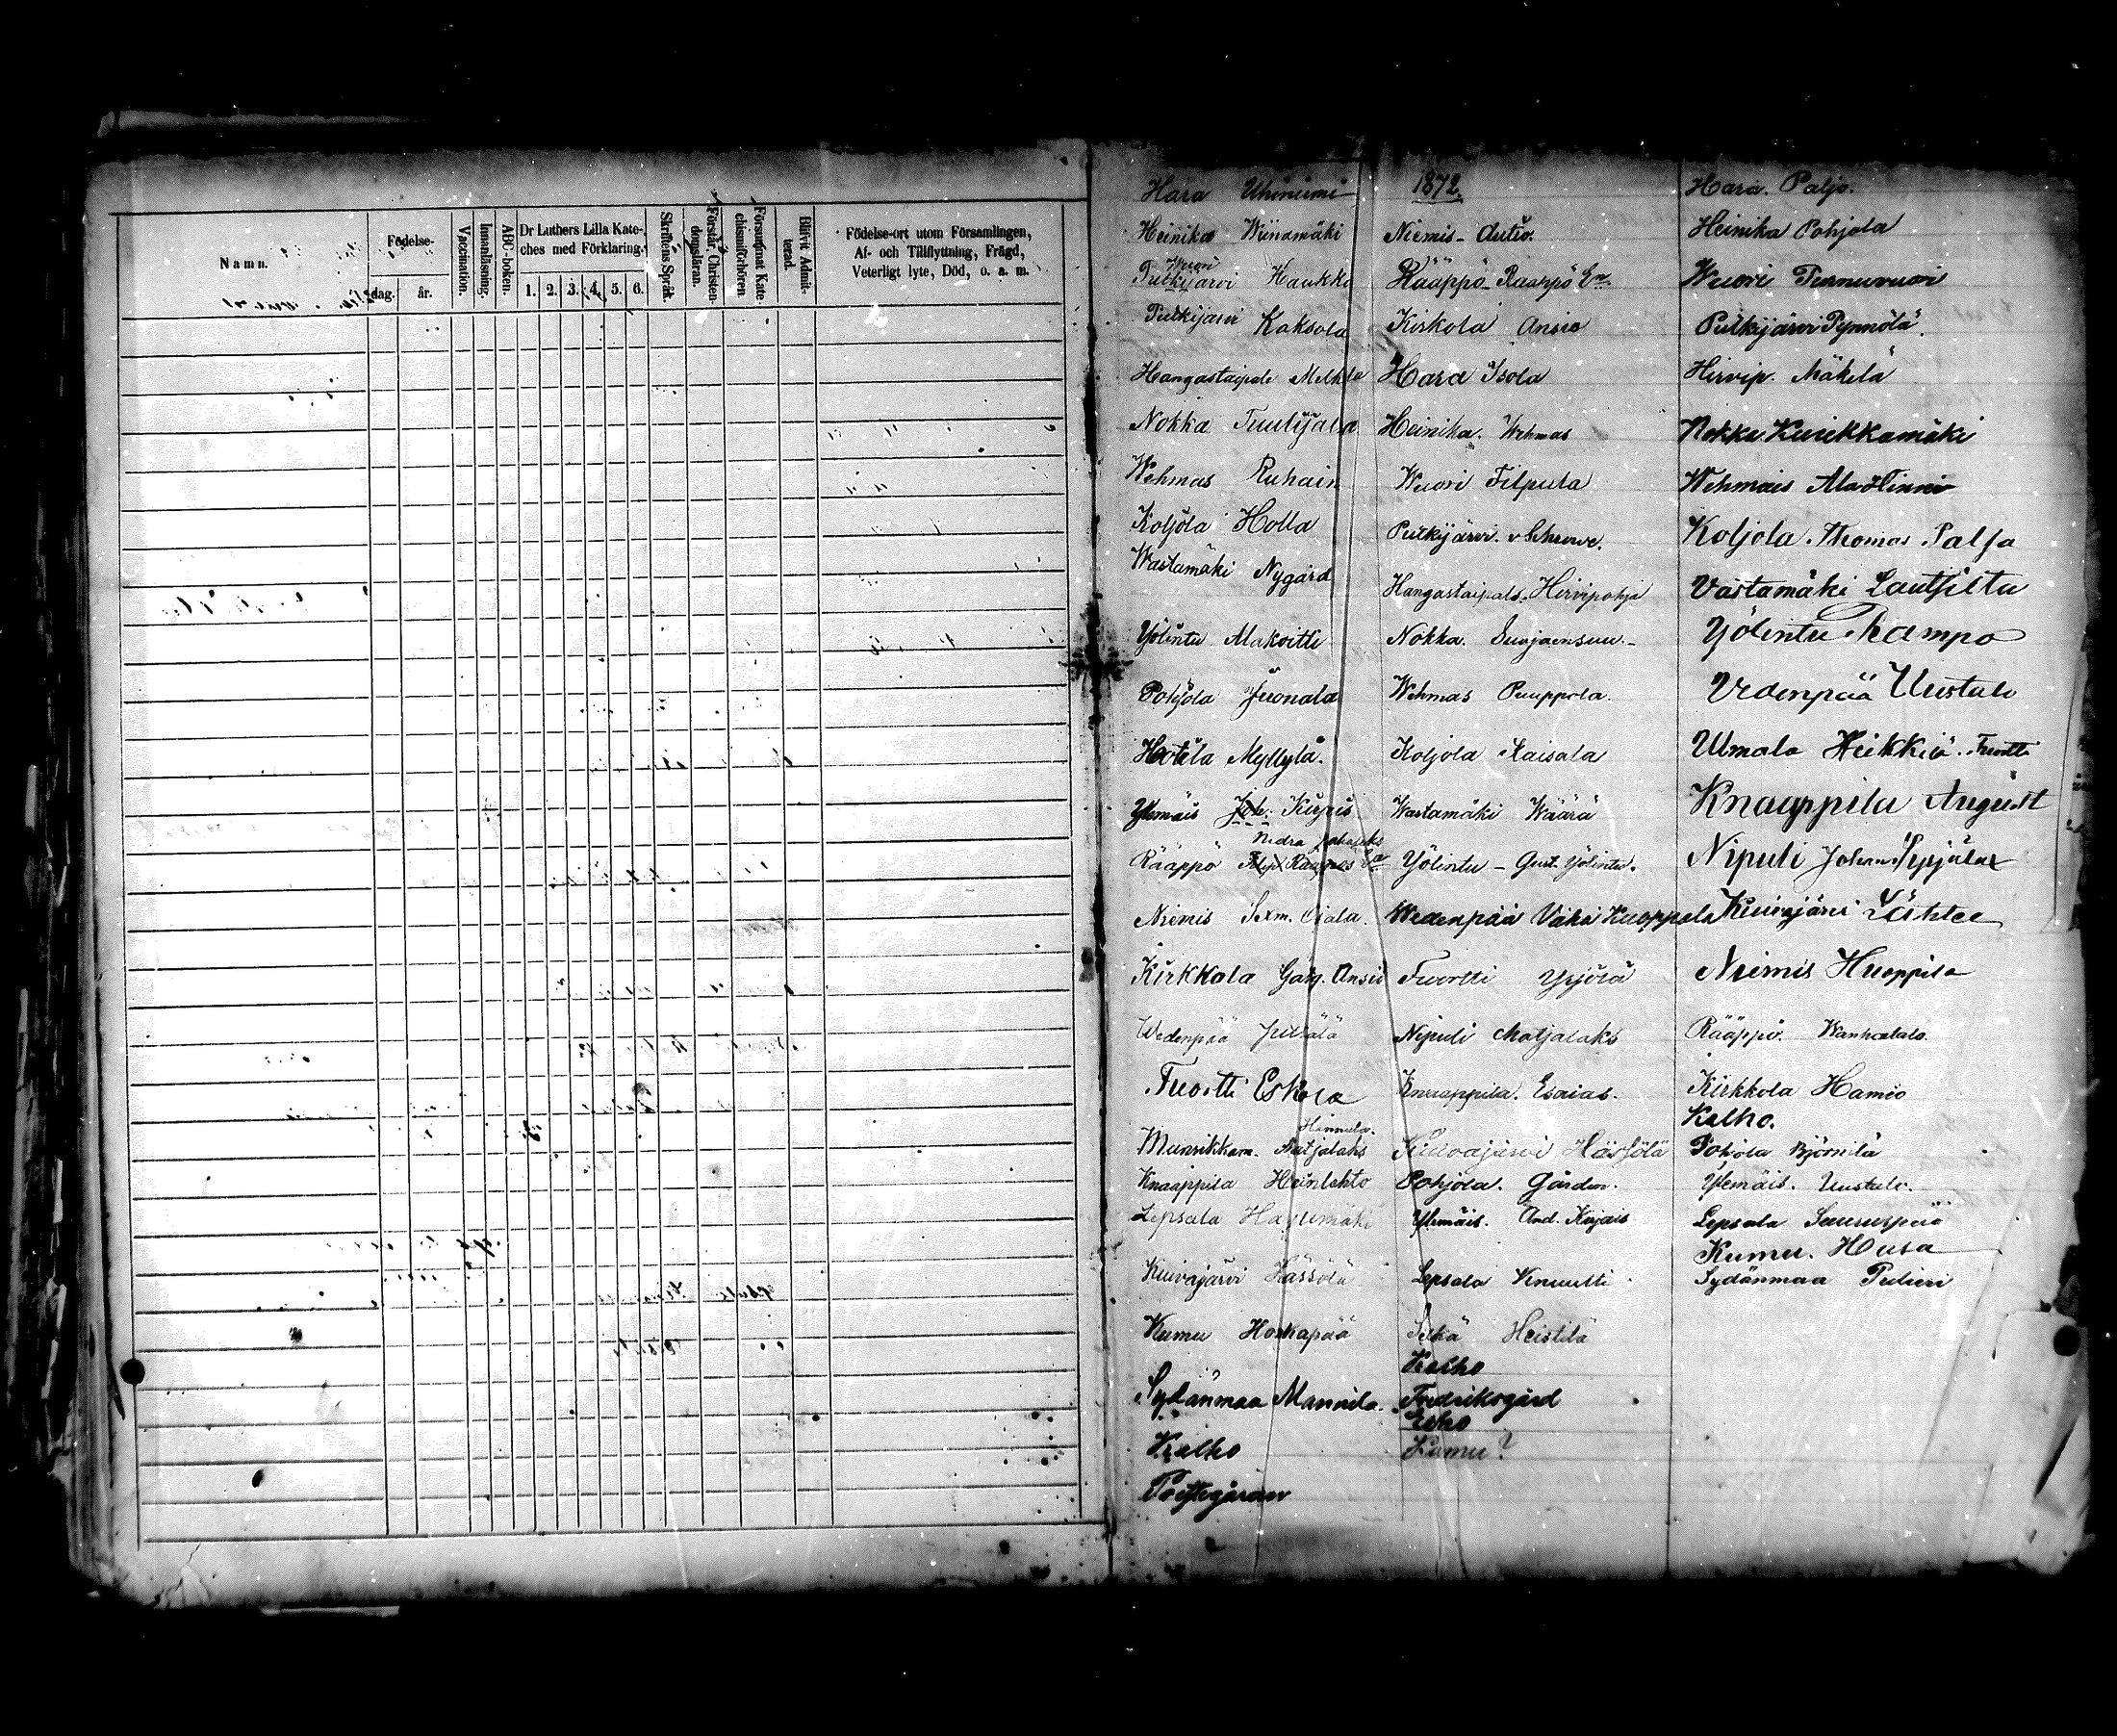 Namn.
Födelse-
dag.
år.
Vaccination.
Innanläsning.
ABC-boken.
Dr Luthers Lilla Kate-
ches med Förklaring.
1. 2. 3. 4. 5. 6.
Skriftens Språk.
Förstår Christen-
domsläran.
Försummat Kate-
chismiförhören
Blifvit Admit-
terad.
Födelse-ort utom Församlingen,
Af- och Tillflyttning, Frägd,
Veterligt lyte, Död, o. a. m.
Hara Uhiniemi
Heinika Wiinamäki
Wuori
Pitkijärvi Haukko
Pitkijärvi Kaksola
Hangastaipale
Nokka Tuulijala
Wehmas Ruhain
Koljola Holla
Wastamäki Nygård
Yölintu Alakoitti
Pohjola Juonala
Hotila Myllylä.
Ylemäis Kirjais
Nedra
Rääppö
Niemis Sexm. Ojala.
Kirkkola Ansio
Wedenpää
Tuortti Eskola
Hinnula.
Knaappila Heinlehto
Lepsala Hayumäki
Kuivajärvi Hässölä
Kumu Honkapää
Sydänmaa Mannila.
Kalho
1872.
Niemis - Autio.
Rääppö - Raappö
Kirkola Ansio
Hara Isola
Heinika. Wehmas
Wuori Filpula
Pitkijärvi.
Hangastaipale. Hirvipohja
Nokka. Suojaensuu.
Wehmas Puuppola.
Koljola Kaisala
Wastamäki Wäärä
Yölintu - Gust. Yölintu.
Wedenpää Vähä Kuoppala
Tuortti Yrjölä
Nipuli Matjalaks
Knaappila. Esaias.
Kuivajärvi Hässölä
Pohjola. Gården.
Ylemäis. And. Kirjais
Lepsala Knuutti
Heistilä
Kalho
Fredriksgård
Kumu?
Hara. Paljo.
Heinika Pohjola
Wuori Tunnuvuori
Pitkijärvi Pynnölä.
Hirvip. Mäkelä
Nokka Kuivikkamäki
Wehmais
Koljola. Thomas Palja
Västamäki Lautsilta
Yölintu Rampo
Vedenpää Uustalo
Ulmala Heikkilä. Tuortti
Knaappila August
Nipuli Johan Yrjälax
Kuivajärvi Lähtee
Niemis Huoppila
Rääppö. Wanhatalo.
Kirkkola Hamio
Kalho.
Pohjola Björnilä
Ylemäis. Uustalo.
Lepsala Suurupää
Kumu. Husa
Sydänmaa